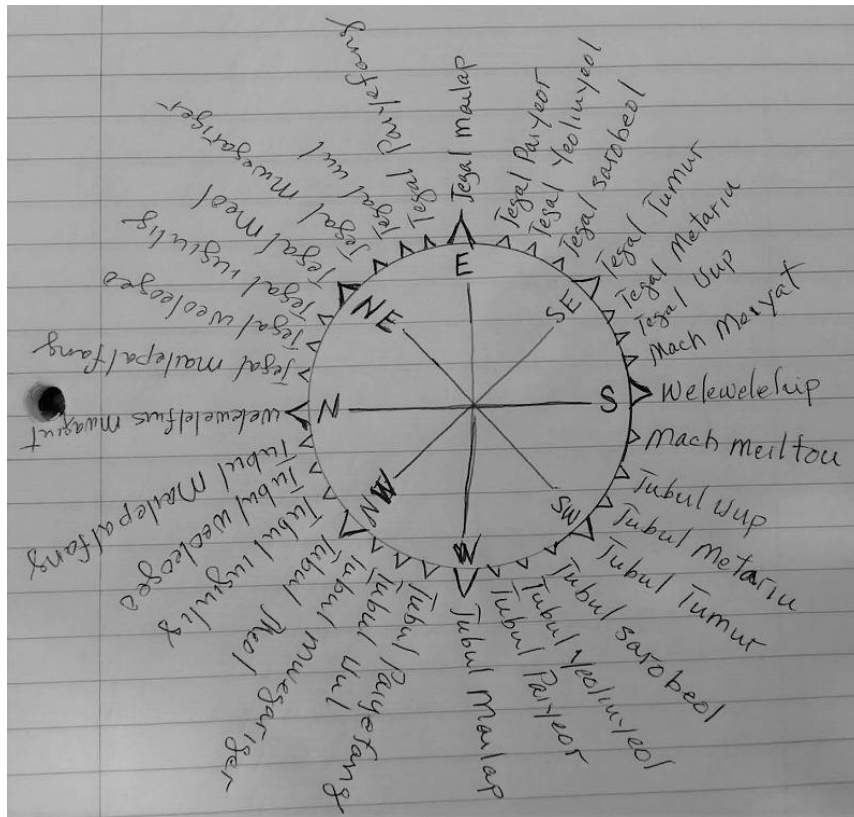 Tegal Mailap
Tegal Paiyeor
Tegal Yeoliuyeol
Tegal Sarobeol
Tegal Tumur
Tegal Metariu
Tegal Wup
Mach Maryat
Welewelehip
Mach Meilfou
Tubul Wup
Tubul Metariu
Tubul Tumur
Tubul Sarobeol
Tubul Yeoliuyeol
Tubul Paiyeor
Tubul Mailap
Tubul Paiyefang
Tubul Uul
Tubul Mwegariger
Tubul Meol
Tubul Iugiulig
Tubul weoleogeo
Tubul Mailepalfang
Tegal mailepalfang
Tegal weoleogeo
Tegal Iugiulig
Tegal Meol
Tegal Mwegariger
Tegal uul
Tegal Paiyefang
E
SE
S
SW
W
N
NE